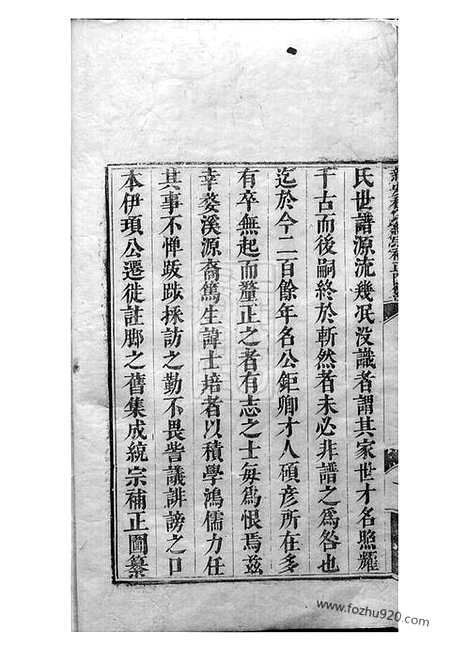 氏世譜源流幾泯没識者謂其家世才名照耀
千古而後嗣終於斬然者未必非譜之爲咎也
迄於今二百餘年名公鉅卿才人碩彦所在多
有卒無起而釐正之者有志之士每爲恨焉兹
幸婺溪源裔篤生諱士培者以積學鴻儒力任
其事不憚跋踄採訪之勤不畏訾議誹謗之口
本伊瑣公遷徙註郎之舊集成統宗補正圖纂
www.fozhu920.com